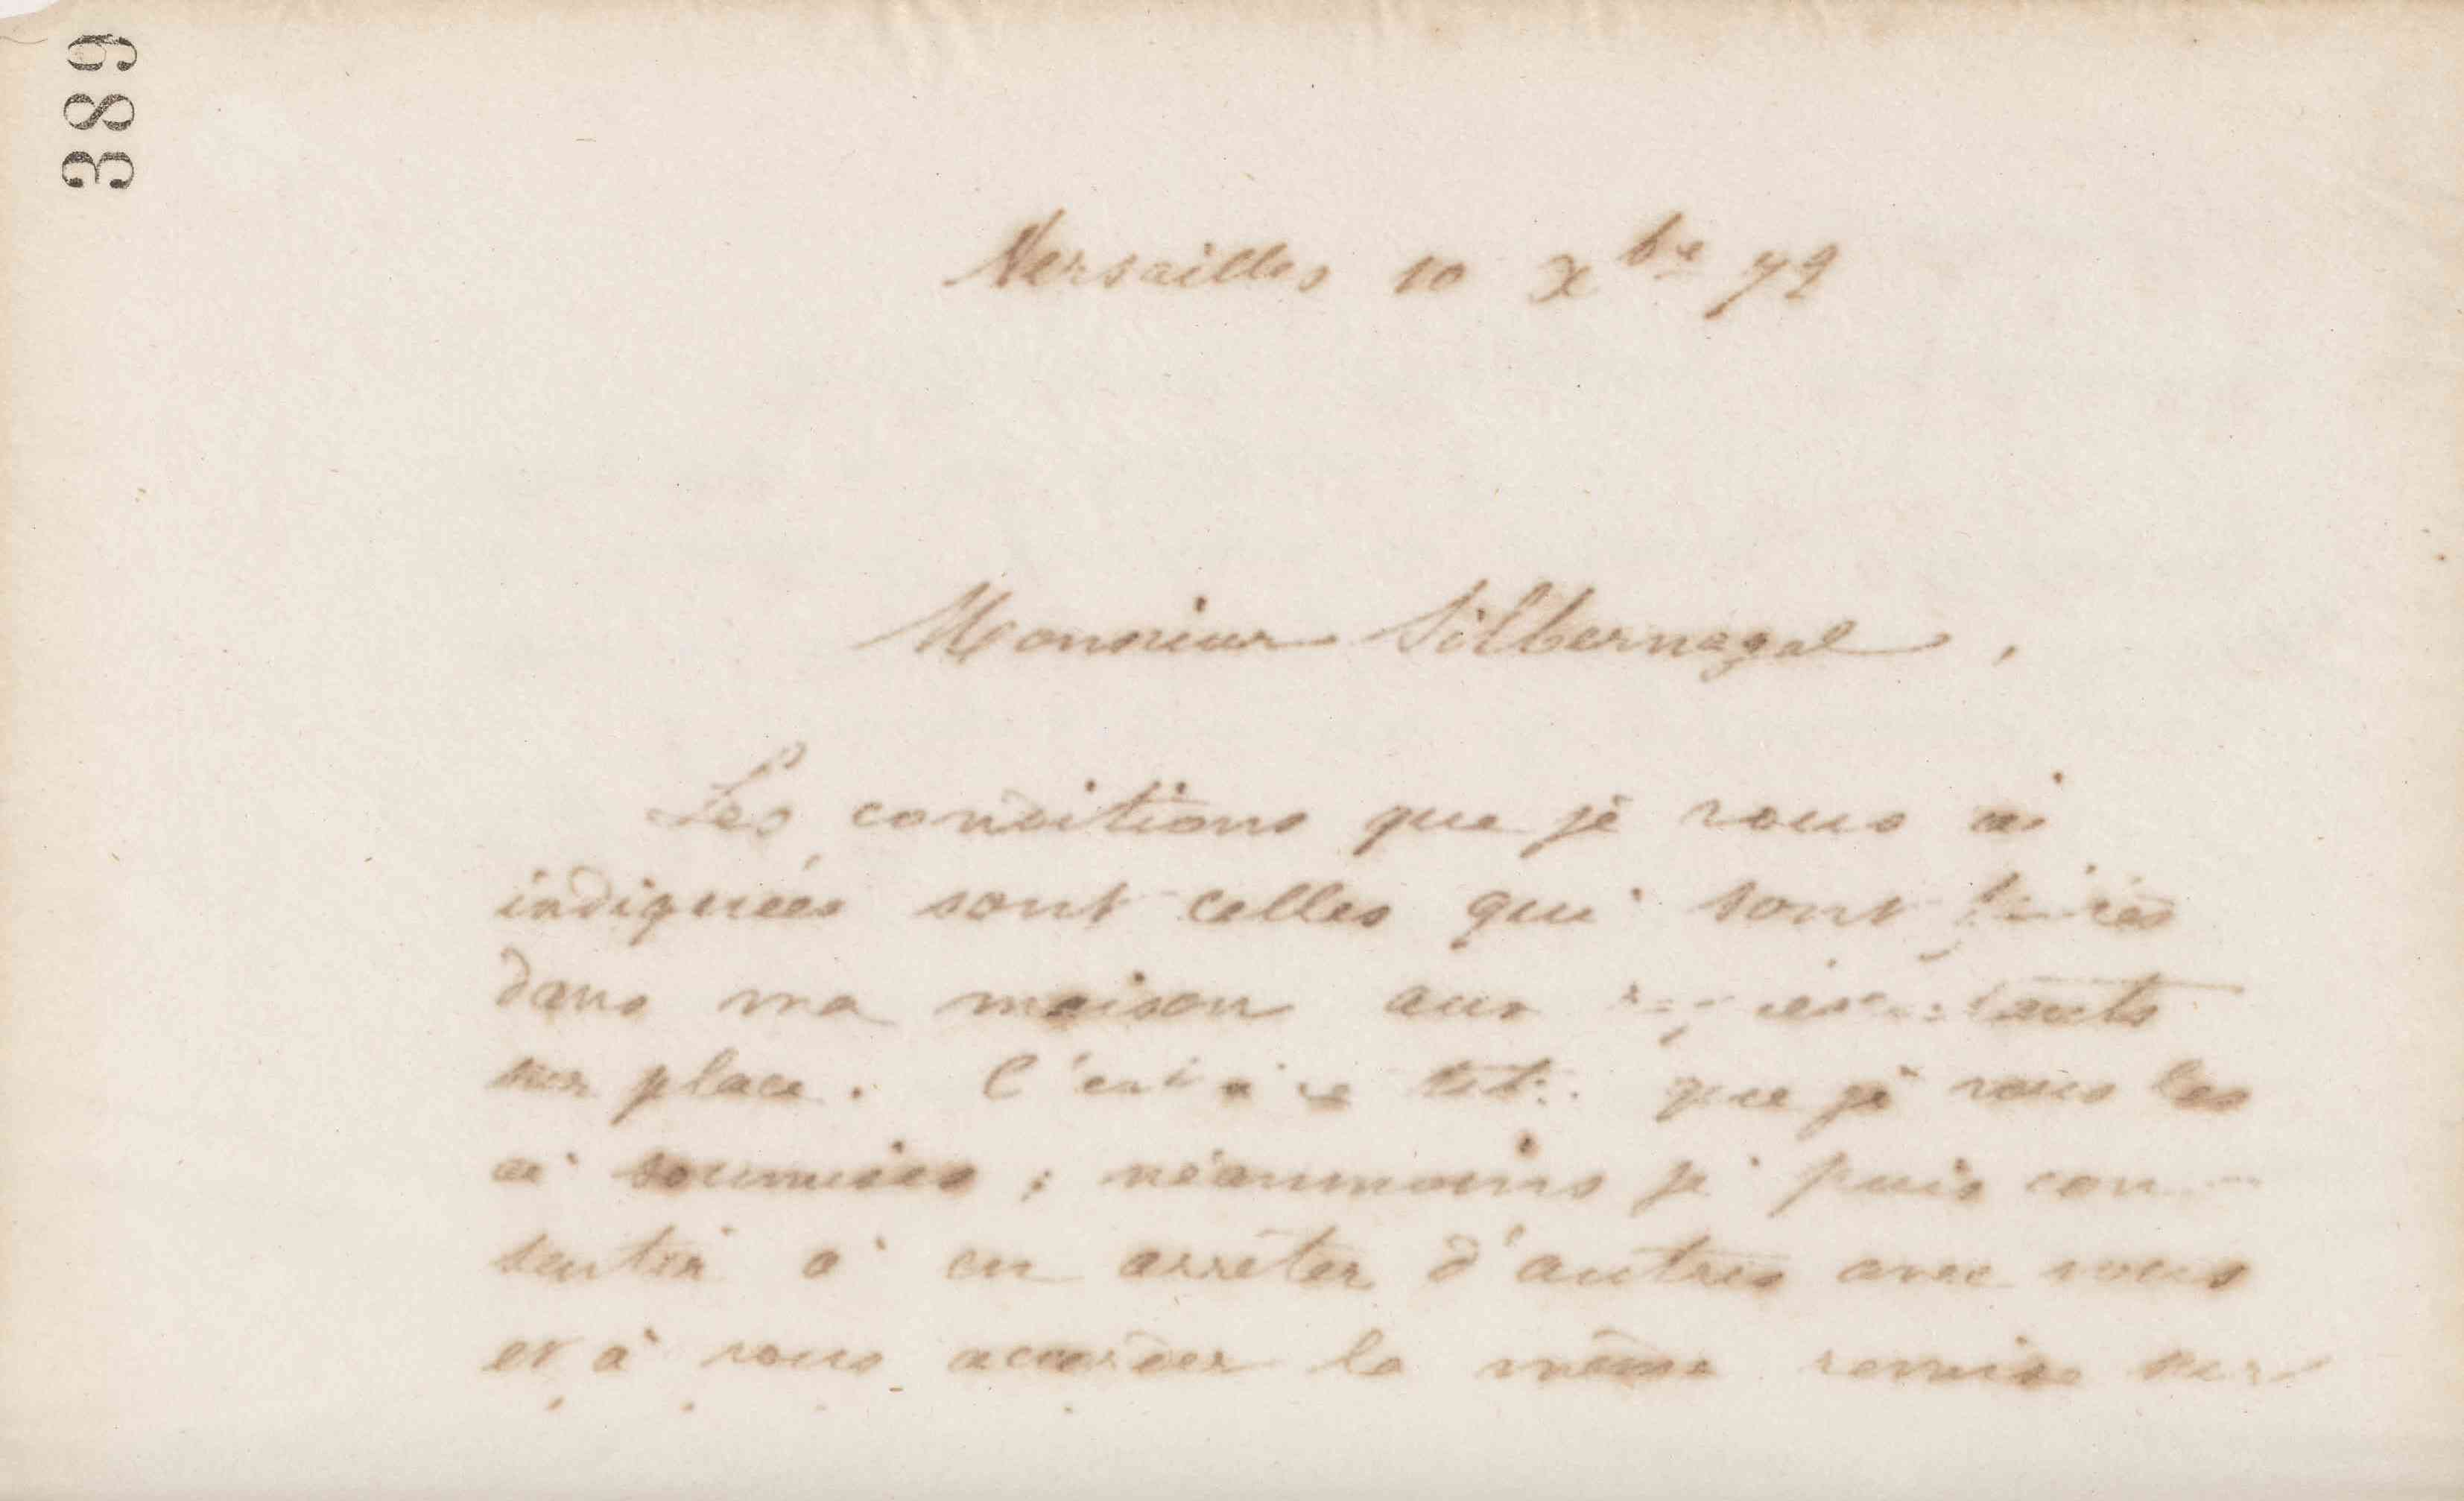 389
Versailles 10 Xbre 72
Monsieur Silbernagel,
Les conditions que je vous ai
indiquées sont celles qui sont faites
dans ma maison aux représentants
sur place. C'est à ce titre que je vous les
ai soumises ; néanmoins je puis con-
sentir à en arrêter d'autres avec vous
et à vous accorder la même remise sur